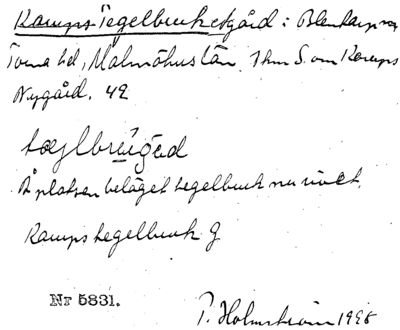 Kamps Tegelbruk, gård: Blentarps sn
Torna hd, Malmöhus län. 1 km S. om Kamps
Nygård. 42
tæjlbrúgəd
På platsen beläget tegelbruk nu rivet.
Kamps tegelbruk G
Nr 5831.
P. Holmström 1995